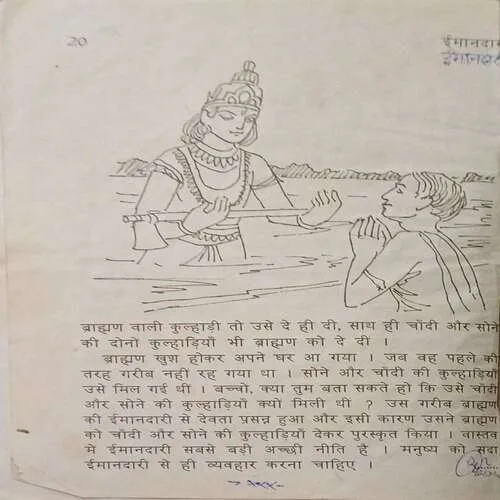 20
ईमानदारी
ईमानदारी
ब्राह्मण वाली कुल्हाडी तो उसे दे ही दी, साथ ही चाँदी और सोने
की दोनों कुल्हाड़ियाँ भी ब्राह्मण को दे दीं ।
ब्राह्मण खुश होकर अपने घर आ गया । जब वह पहले की
तरह गरीब नहीं रह गया था । सोने और चाँदी की कुल्हाड़ियाँ
उसे मिल गई थीं । बच्चो, क्या तुम बता सकते हो कि उसे चाँदी
और सोने की कुल्हाड़ियाँ क्यों मिली थीं ? उस गरीब ब्राह्मण
की ईमानदारी से देवता प्रसन्न हुआ और इसी कारण उसने ब्राह्मण
को चाँदी और सोने की कुल्हाड़ियाँ देकर पुरस्कृत किया । वास्तव
में ईमानदारी सबसे बड़ी अच्छी नीति है । मनुष्य को सदा
ईमानदारी से ही व्यवहार करना चाहिए ।